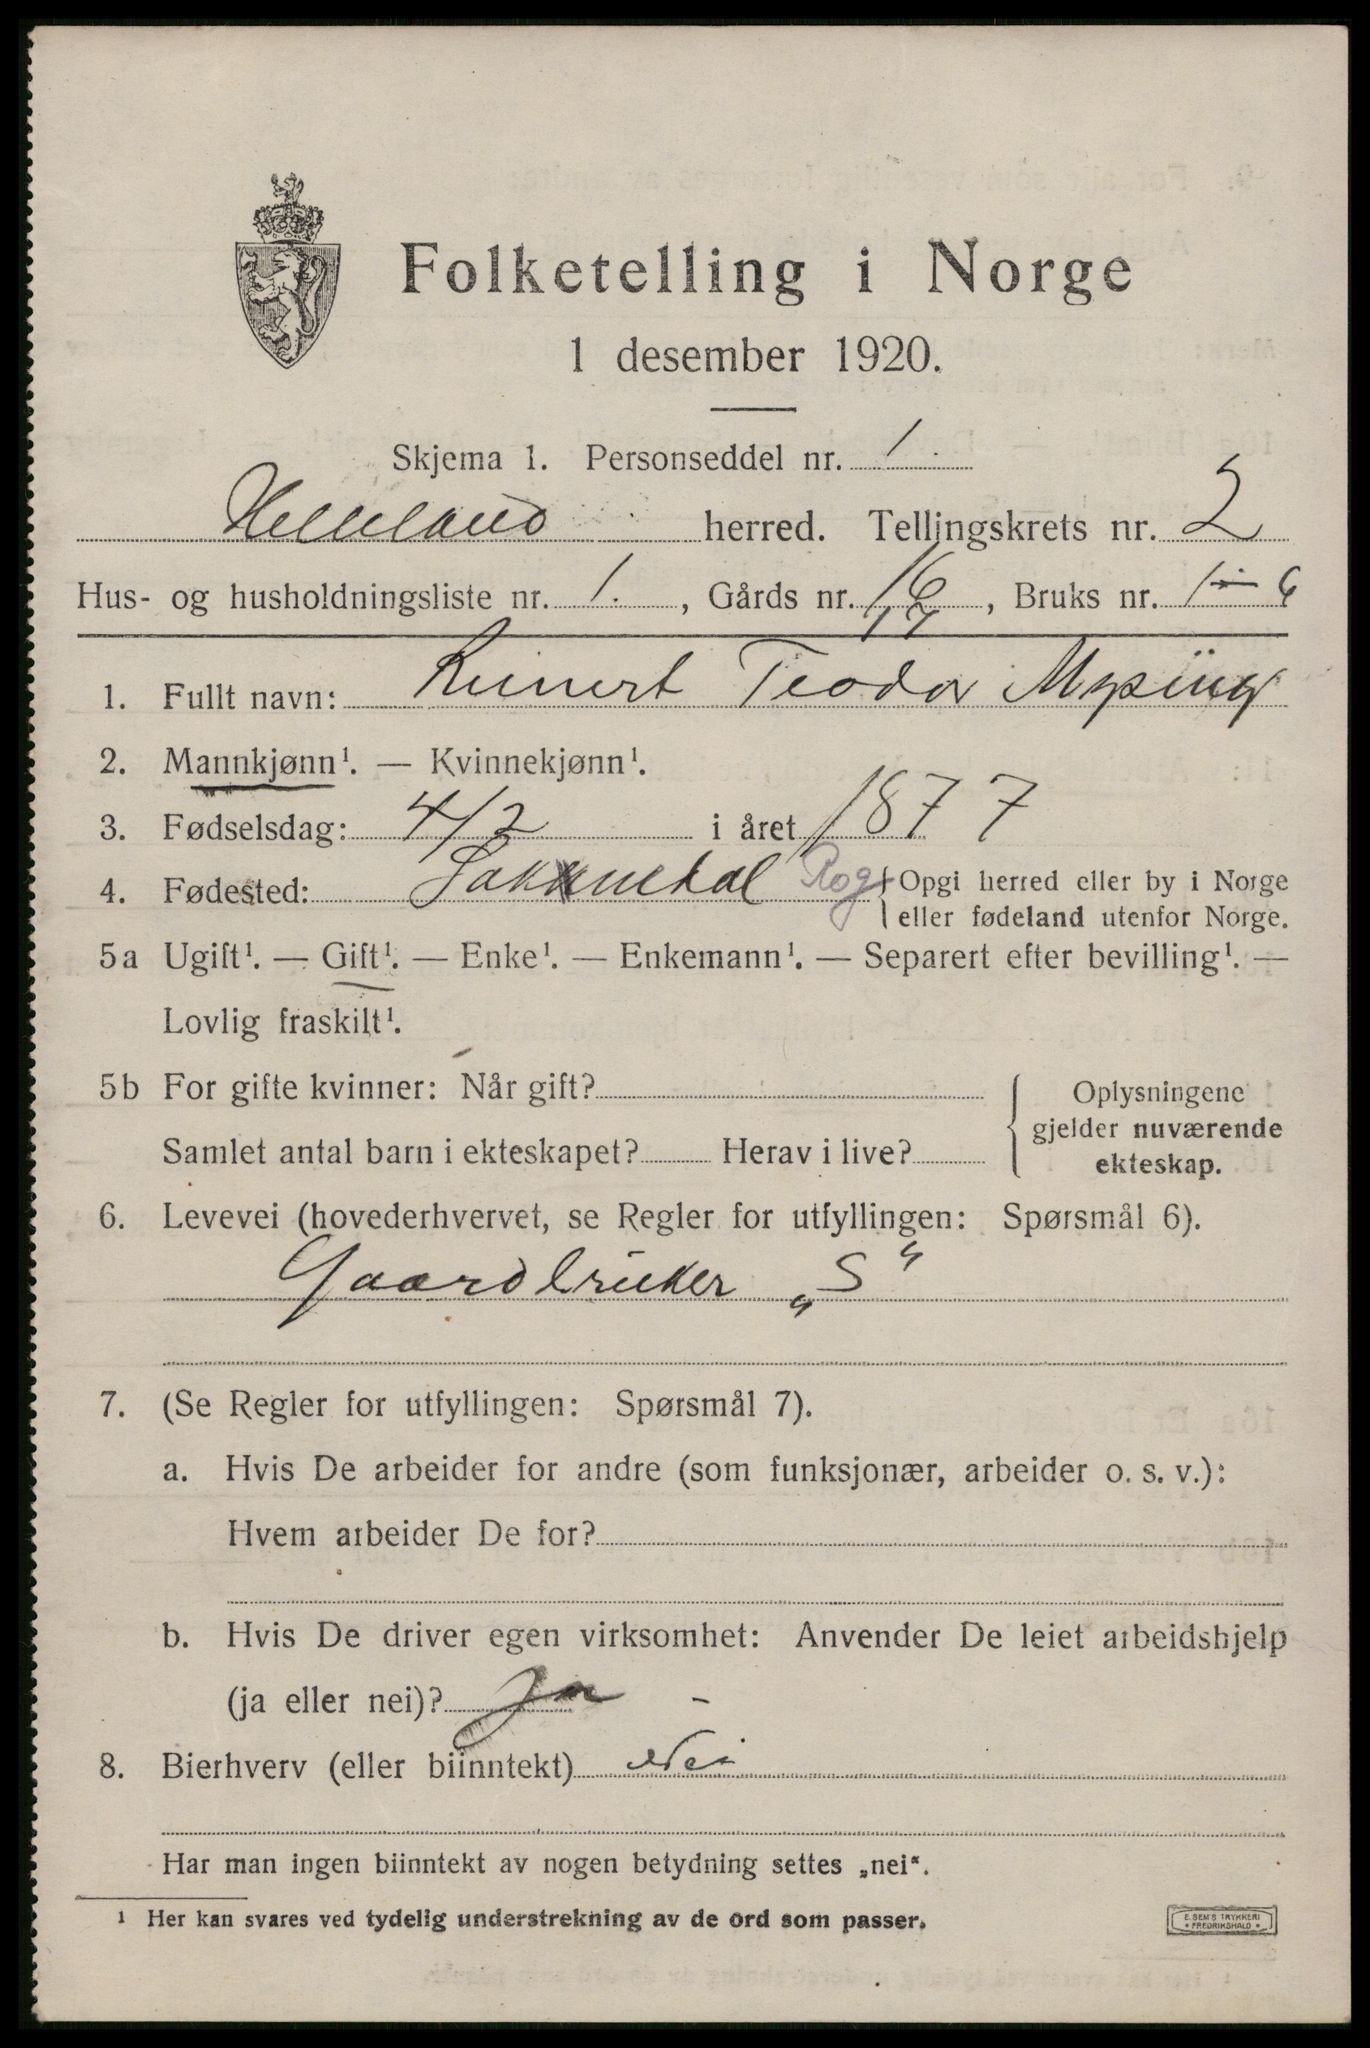 Folketelling i Norge
1 desember 1920.
Skjema 1. Personseddel nr. 1.
Helleland herred. Tellingskrets nr. 2
Hus- og husholdningsliste nr. 1., Gårds nr. 16 17, Bruks nr. 1 6
1. Fullt navn: Reinert Teodor
2. Mannkjønn¹. — Kvinnekjønn¹.
3. Fødselsdag: 4/2 i året 1877
4. Fødested: Rog { Opgi herred eller by i Norge
eller fødeland utenfor Norge.
5a Ugift¹. — Gift¹. — Enke¹. — Enkemann¹. — Separert efter bevilling¹. —
Lovlig fraskilt¹.
5b For gifte kvinner: Når gift?
Samlet antal barn i ekteskapet? Herav i live?
Oplysningene
gjelder nuværende
ekteskap.
6. Levevei (hovederhvervet, se Regler for utfyllingen: Spørsmål 6).
Gaardbruker „S"
7. (Se Regler for utfyllingen: Spørsmål 7).
a. Hvis De arbeider for andre (som funksjonær, arbeider o. s. v.):
Hvem arbeider De for?
b. Hvis De driver egen virksomhet: Anvender De leiet arbeidshjelp
(ja eller nei)? Ja –
8. Bierhverv (eller biinntekt) Nei
Har man ingen biinntekt av nogen betydning settes „nei“.
¹ Her kan svares ved tydelig understrekning av de ord som passer.
E. SEM'S TRYKKERI
• FREDRIKSHALD •